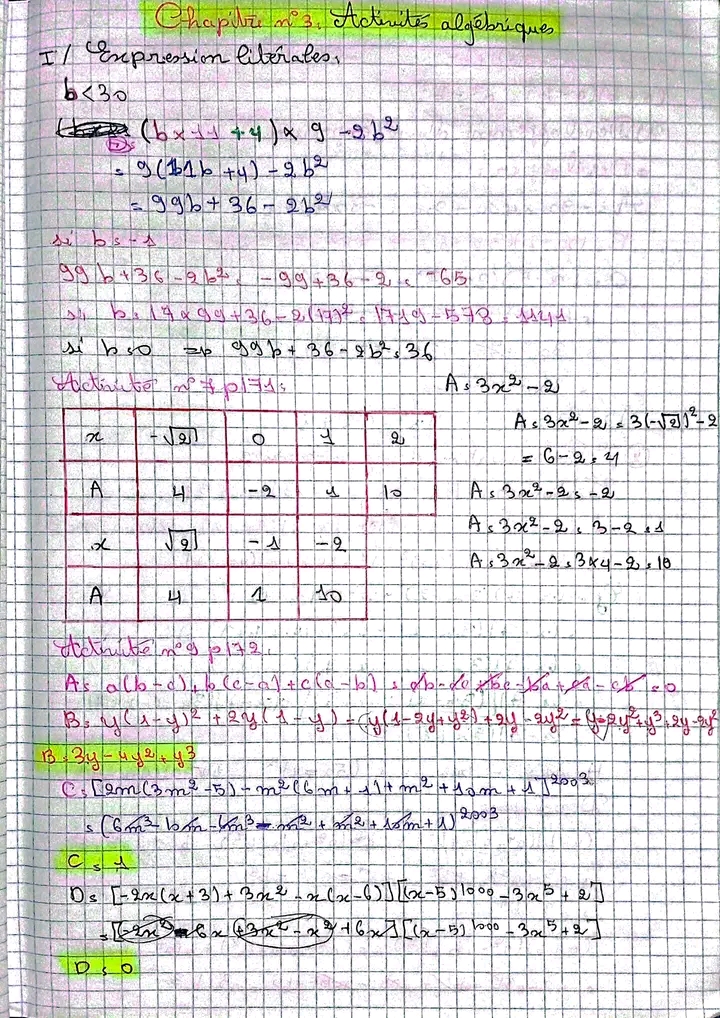 Chapitre n°3. Activités algébriques
I/ Expression litérales.
b<30
(b×11+4)×9-2b²
= 9(11b+4)-2b²
= 99b+36-2b²
si b=-1
99b+36-2b² = -99+36-2 = -65
si b=17×99+36-2(17)² = 1719-578 = 1141
si b=0 => 99b+36-2b²=36
Activité n°7 p171:
A=3x²-2
x -√2 0 1 2
A 4 -2 1 10
x √2 -1 -2
A 4 1 10
A=3x²-2 = 3(-√2)²-2
= 6-2=4
A=3x²-2=-2
A=3x²-2=3-2=1
A=3x²-2=3×4-2=10
Activité n°9 p172.
A= a(b-c)+b(c-a)+c(a-b) = ab-ac+bc-ba+ca-cb=0
B= y(1-y)²+2y(1-y) = (y(1-2y+y²)+2y-2y² = y-2y²+y³+2y-2y²
B=3y-4y²+y³
C=[2m(3m²-5)-m²(6m+1)+m²+10m+1]²⁰⁰³
=(6m³-10m-6m³-m²+m²+10m+1)²⁰⁰³
C=1
D=[-2x(x+3)+3x²-x(x-6)][(x-5)¹⁰⁰⁰-3x⁵+2]
=[-2x²-6x+3x²-x²+6x][(x-5)¹⁰⁰⁰-3x⁵+2]
D=0